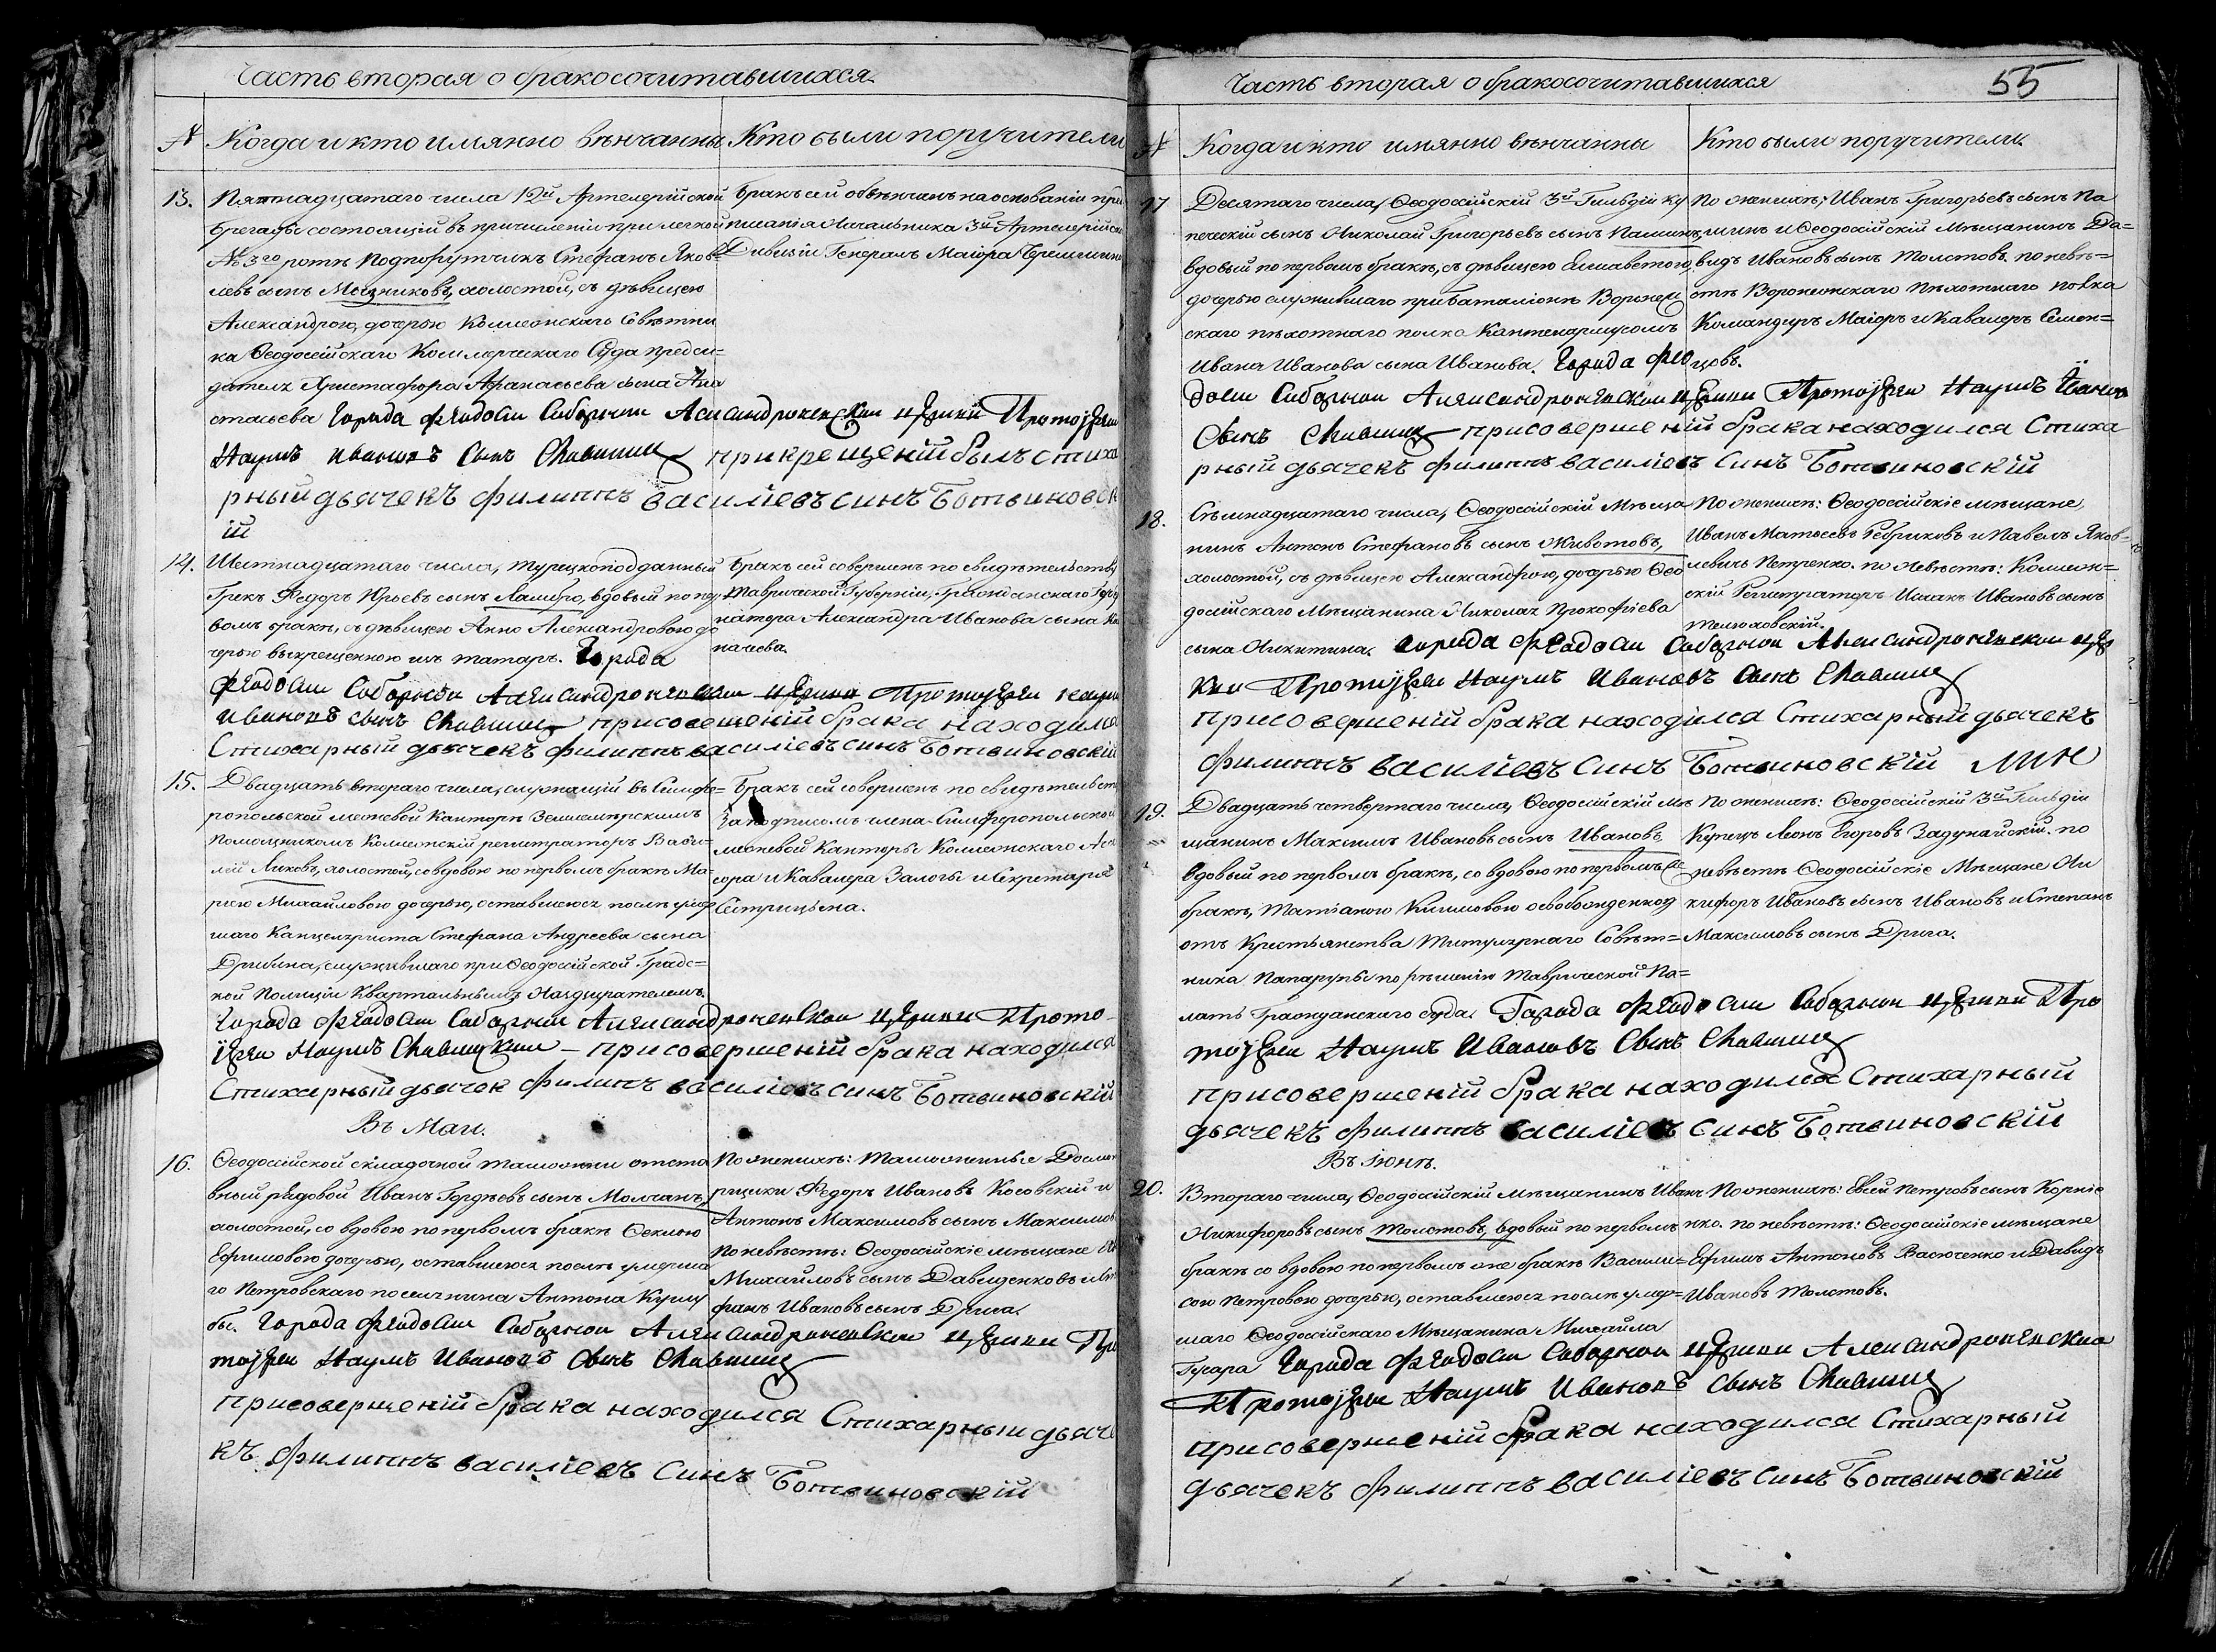 Часть вторая о бракосочитавшихся
№ Когда и кто имянно вѣнчанны Кто были поручители
13. Пятнадцатаго числа 12й Артелерійской
Брегады состоящій въ причисленіи при легкой
№ 3го ротѣ Стефанъ Яков
левъ сынъ холостой, съ дѣвицею
Александрою, дочерью Коллежскаго Совѣтни
ка Ѳеодосійскаго Коммерческаго Суда предсѣ=
дателя Христафора Афанасьева сына Ана
стасьева Города Феодосіи Соборной Александроневской церкви Протоіерей
Наумъ Ивановъ Сынъ прикрещеній былъ стиха
рный дьячекъ филиппъ василіевъ синъ Ботвиновск
ій
Бракъ сей обвѣнчанъ на основаніи пред
писанія Начальника 3й Артелерійск
Дивизіи Генералъ Маіора
14. Шестнадцатаго числа, турецкоподданный
Грекъ Федоръ Юрьевъ сынъ Ламбро, вдовый по пер
вомъ бракѣ, съ дѣвицею Анно Александровою до
черью выкрещенною изъ татаръ. Города
Феодосіи Соборной Александроневской церкви Протоіерей Наумъ
Ивановъ сынъ присовершеній брака находился
Стихарный дьячекъ филиппъ василіевъ синъ Ботвиновскій
Бракъ сей совершенъ по свидѣтельству
Таврической Губерніи, Гражданскаго Губер
натора Александра Иванова сына Ка
начеева.
15. Двадцать втораго числа, служащій въ Симфе=
ропольской межевой Канторѣ Землемѣрскимъ
Помощникомъ Коллежскій регистраторъ Васи=
лій Ликовъ, холостой, со вдовою по первомъ бракѣ Ма=
ріею Михайловою дочерью, оставшеюся послѣ умер
шаго Канцеляриста Стефана Андреева сына
Дрибина, служившаго при Ѳеодосійской Градс=
кой Полиціи Квартальнымъ Надзирателемъ.
Города Феодосіи Соборной Александроневской церкви Прото-
іерей Наумъ – присовершеній брака находился
Стихарный дьячек филиппъ василіевъ синъ Ботвиновскій
Бракъ сей совершенъ по свидѣтельств
за подписомъ члена Симферопольской
межевой Канторы Коллежскаго Асе
сора и Кавалера Залоги и Секретаря
Въ Маи.
16. Ѳеодосійской складочной таможни отста
вный рядовой Иванъ Гордѣевъ сынъ Молчанъ,
холостой, со вдовою по первомъ бракѣ Ѳеклою
Ефимовою дочерью, оставшеюся послѣ умерша
го Петровскаго поселянина Антона
бы. Города Феодосіи Соборной Александроневской церкви Про
тоіерей Наумъ Ивановъ Сынъ
присовершеній брака находился Стихарный дьяче
къ филиппъ василіевъ синъ Ботвиновскій
По женихѣ: Таможенные Досмо
рщики Федоръ Ивановъ Косовскій и
Антонъ Максимовъ сынъ Максимов
По невѣстѣ: Ѳеодосійскіе мѣщане
Михайловъ сынъ Давиденковъ и Сте
фанъ Ивановъ сынъ Дрига.
Часть вторая о бракосочитавшихся 55
№ Когда и кто имянно вѣнчанны Кто были поручители.
17 Десятаго числа, Ѳеодосійскій 3й Гильдіи ку
печескій сынъ Николай Григорьевъ сынъ Пашинъ,
вдовый по первомъ бракѣ, съ дѣвицею Елисаветою,
дочерью служившаго при баталіонѣ Воронеж
скаго пѣхотнаго полка Каптенармусомъ
Ивана Иванова сына Иванова. Города Фео
досіи Соборной Александроневской церкви Протоіерей Наумъ Ивановъ
Сынъ присовершеній брака находился Стиха
рный дьячекъ филиппъ василіевъ синъ Ботвиновскій
По женихѣ; Иванъ Григорьевъ сынъ Па
шинъ и Ѳеодосійскій Мѣщанинъ Да=
видъ Ивановъ сынъ Толстовъ. по невѣ=
стѣ Воронежскаго Пѣхотнаго полка
Командиръ Маіоръ и Кавалеръ Семен=
цовъ.
18. Съмнадцатаго числа, Ѳеодосійскій Мѣща
нинъ Антонъ Стефановъ сынъ Животовъ,
холостой, съ дѣвицею Александрою, дочерью Ѳео
досійскаго Мѣщанина Николая Прокофіева
сына Никитина. Города Феодосіи Соборной Александроневской цер
кви Протоіерей Наумъ Ивановъ Сынъ
присовершеній брака находился Стихарный дьячекъ
филиппъ василіевъ синъ Ботвиновскій
По женихѣ: Ѳеодосійскіе мѣщане,
Иванъ Матвеевъ Ребриковъ и Павелъ Яков=
левичь Петренко. по Невѣстѣ: Коллеж=
скій Регистраторъ Исаакъ Ивановъ сынъ
19. Двадцать четвертаго числа, Ѳеодосійскій Мѣ
щанинъ Максимъ Ивановъ сынъ Ивановъ,
вдовый по первомъ бракѣ, со вдовою по первомъ же
бракѣ, Татіаною Климовою освобожденною
отъ Крестьянства Титулярнаго Совѣт=
ника Папарупы по рѣшенію Таврической Па=
латы Гражданскаго суда. Города Феодосіи Соборной церкви Про
тоіерей Наумъ Ивановъ Сынъ
присовершеній брака находился Стихарный
дьячекъ филиппъ василіевъ синъ Ботвиновскій
По женихѣ: Ѳеодосійскій 3й Гильдіи
Купецъ Леонъ Егоровъ Задунайскій. по
невѣстѣ Ѳеодосійскіе Мѣщане Ни
кифоръ Ивановъ сынъ Ивановъ и Степанъ
Максимовъ сынъ Дрига.
Въ Іюнѣ.
20. Втораго числа, Ѳеодосійскій мѣщанинъ Иванъ
Никифоровъ сынъ Толстовъ, вдовый по первомъ
бракѣ со вдовою по первомъ же бракѣ Васили=
сою Петровою дочерью, оставшеюся послѣ умер=
шаго Ѳеодосійскаго Мѣщанина Михайла
Гусара Города Феодосіи Соборной церкви Александроневской
Протоіерей Наумъ Ивановъ сынъ
присовершеній брака находился Стихарный
дьячекъ филиппъ василіевъ синъ Ботвиновскій
По женихѣ: Евсей Петровъ сынъ Корніе
нко. по невѣстѣ: Ѳеодосійскіе мѣщане
Ефимъ Антоновъ Васюченко и Давидъ
Ивановъ Толстовъ.